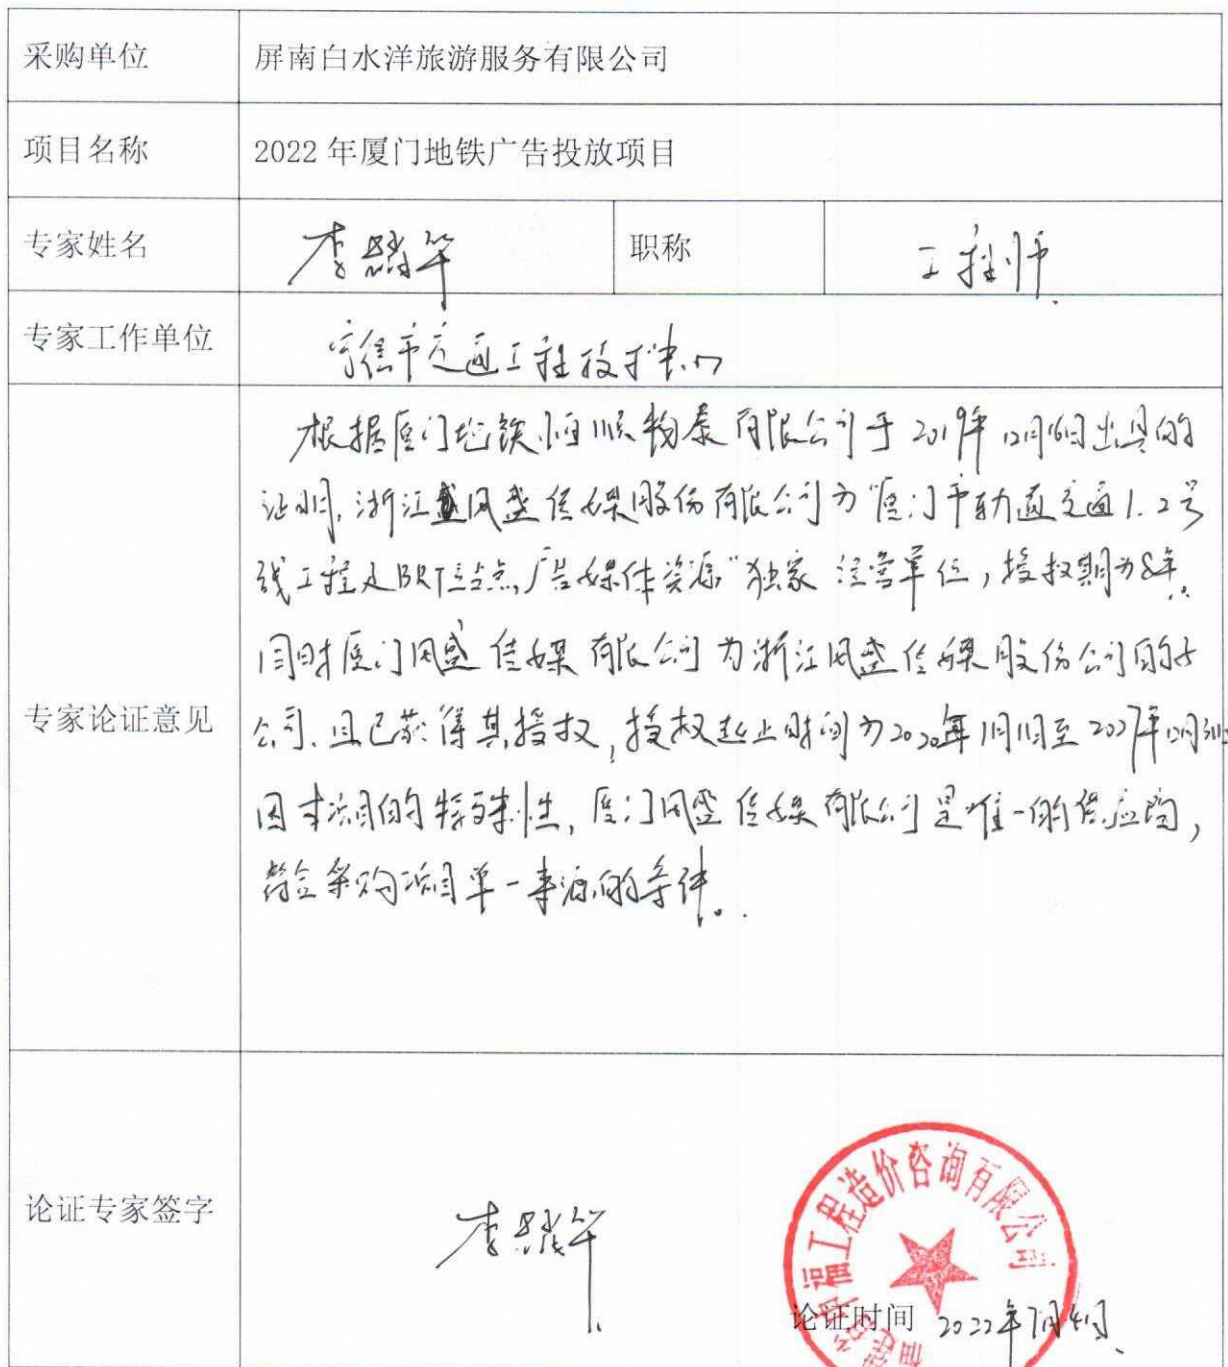 采购单位 屏南白水洋旅游服务有限公司
项目名称 2022年厦门地铁广告投放项目
专家姓名 李 职称 工程师
专家工作单位 宁德市交通工程技术中心
根据厦门地铁恒顺物泰有限公司于2019年12月16日出具的
证明,浙江盛风盛传媒股份有限公司为"厦门市轨道交通1.2号
线工程及BRT站点广告媒体资源"独家经营单位,授权期为8年。
同时厦门风盛传媒有限公司为浙江风盛传媒股份公司的子
专家论证意见
公司、且已获得其授权,授权起止时间为2020年1月1日至2027年12月31日
因本项目的特殊性,厦门风盛传媒有限公司是唯一的供应商,
符合采购项目单一来源的条件。
论证专家签字 李
工程造价咨询有限公司
论证时间 2022年7月4日